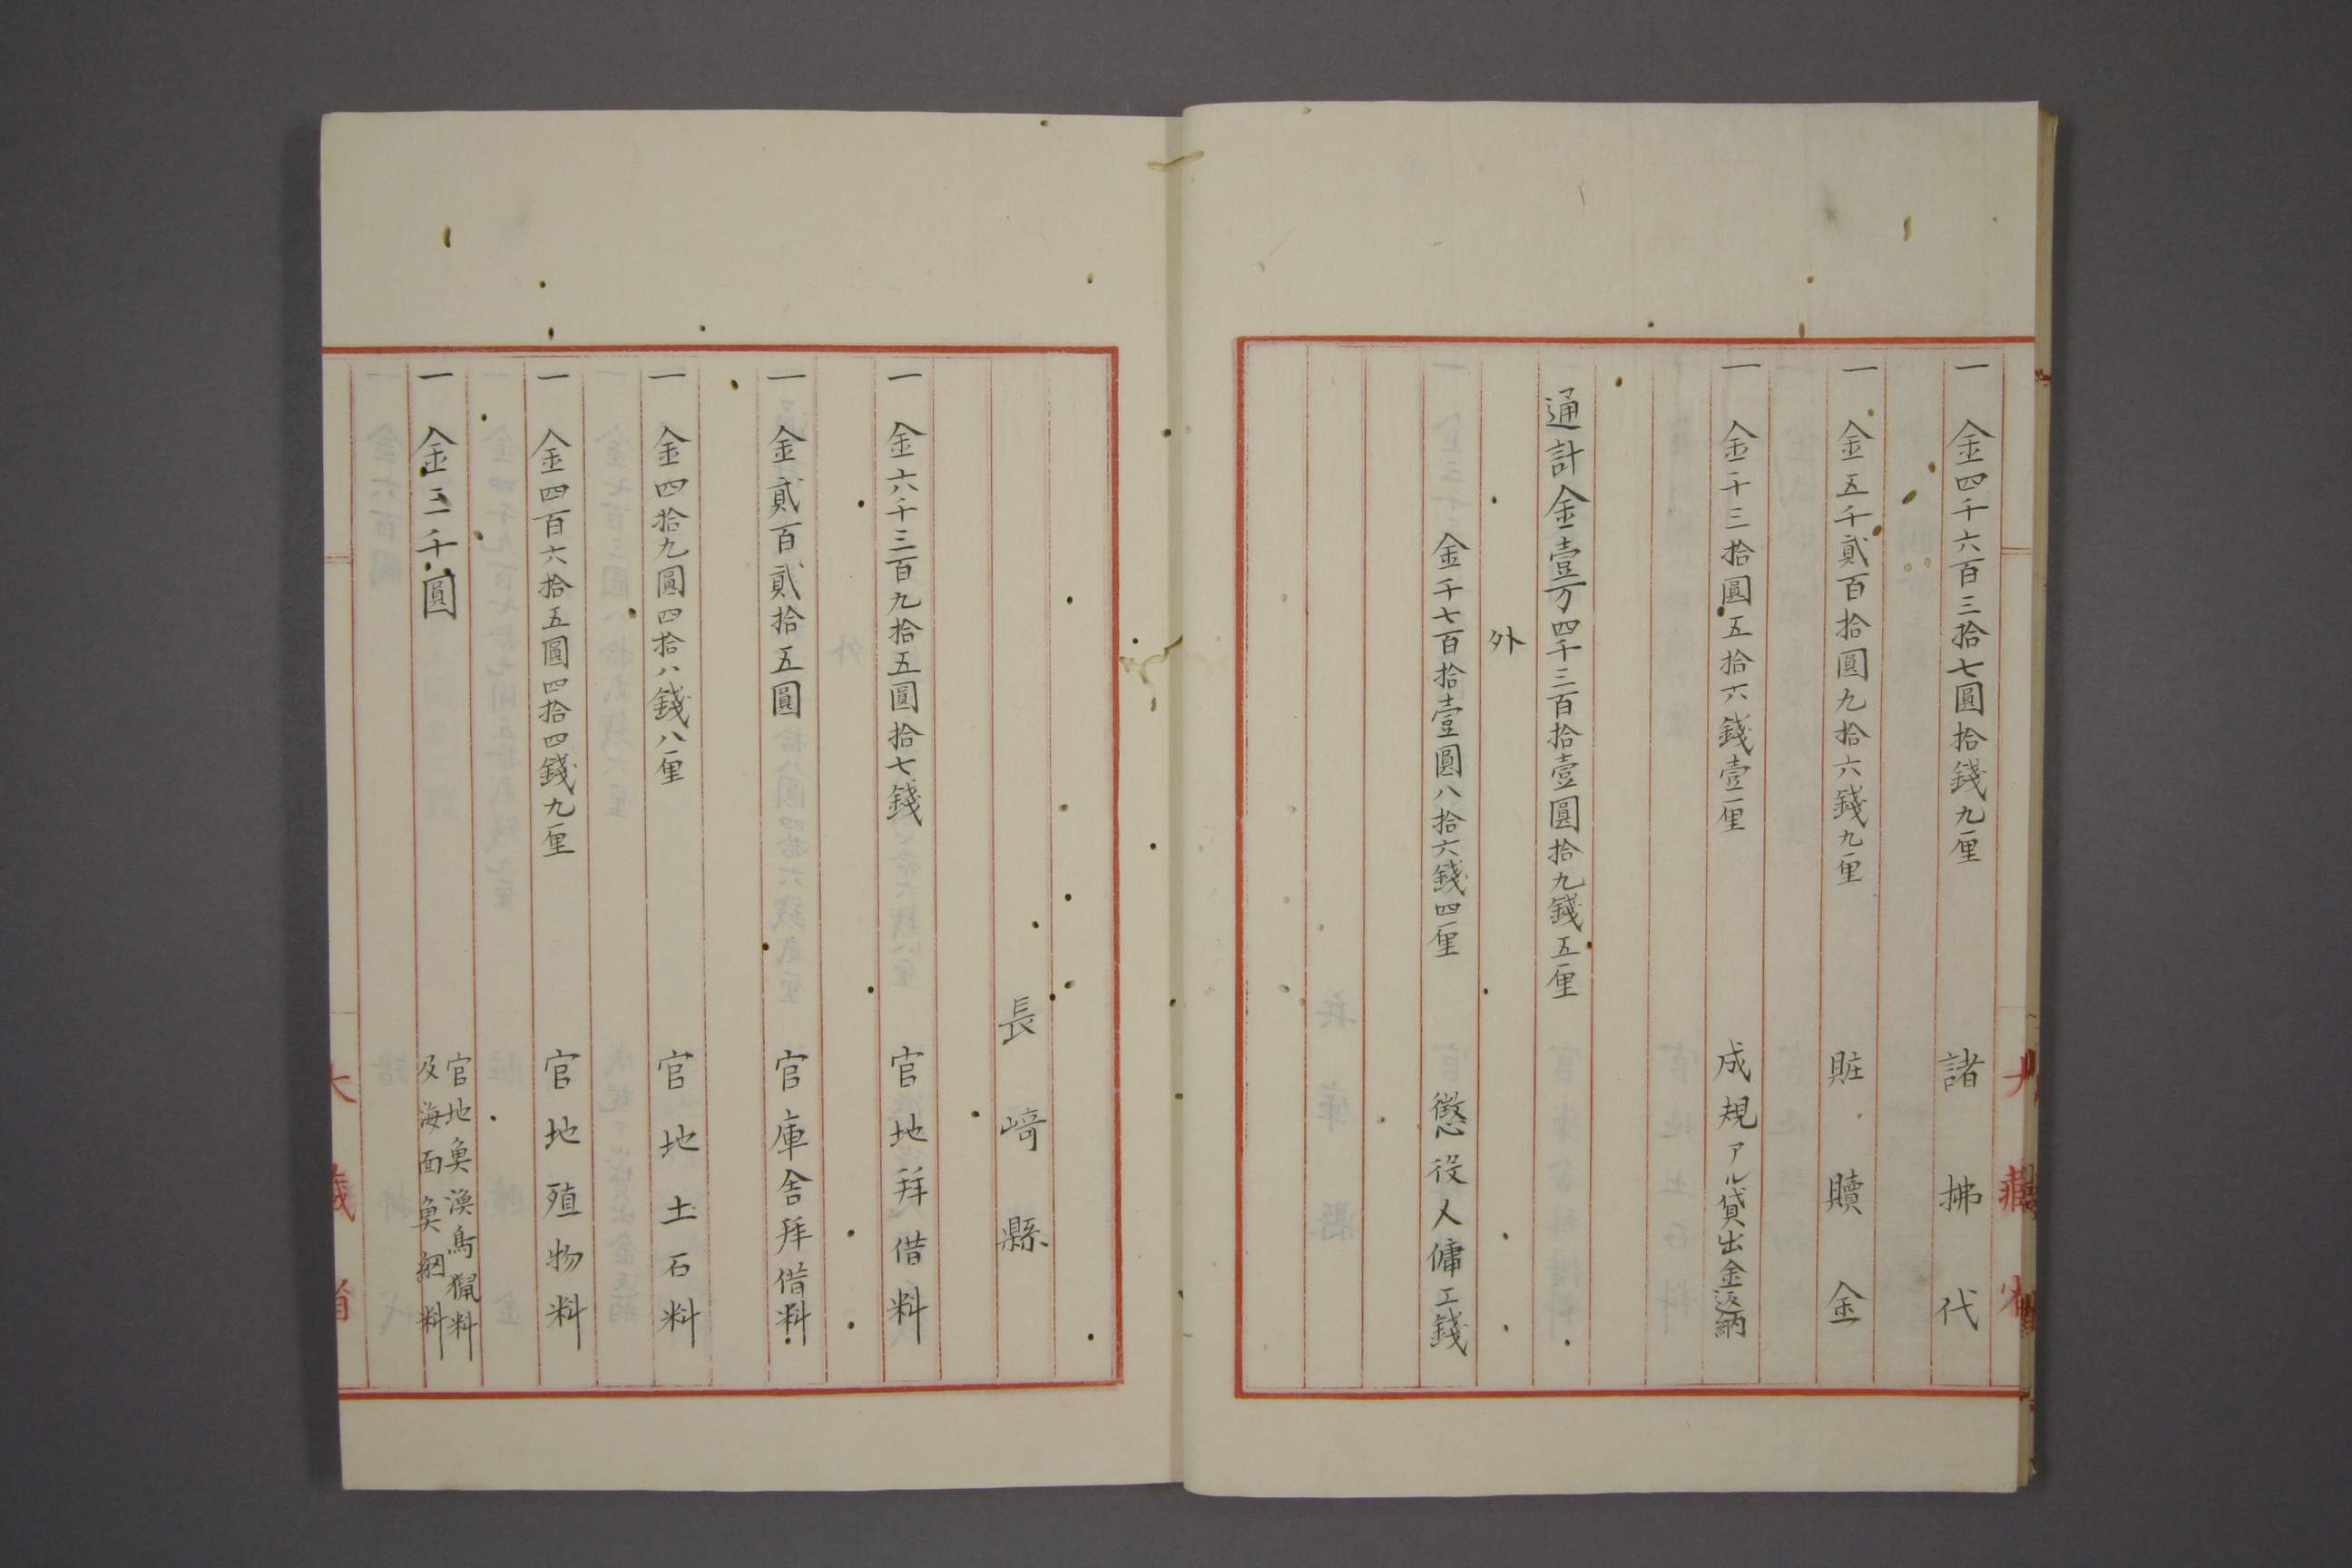 大藏省
一 金四千六百三拾七圓拾錢九厘 諸拂代
一 金五千貳百拾圓九拾六錢九厘 賍贖金
一 金千三拾圓五拾六錢壹厘 成規アル貸出金返納
通計金壹万四千三百拾壹圓拾九錢五厘
外
金千七百拾壹圓八拾六錢四厘 懲役人傭工錢
長﨑縣
一 金六千三百九拾五圓拾七錢 官地拜借料
一 金貳百貳拾五圓 官庫舍拜借料
一 金四拾九圓四拾八錢八厘 官地土石料
一 金四百六拾五圓四拾四錢九厘 官地殖物料
一 金三千圓 官地魚漁鳥獵料
及海面魚網料
大藏省